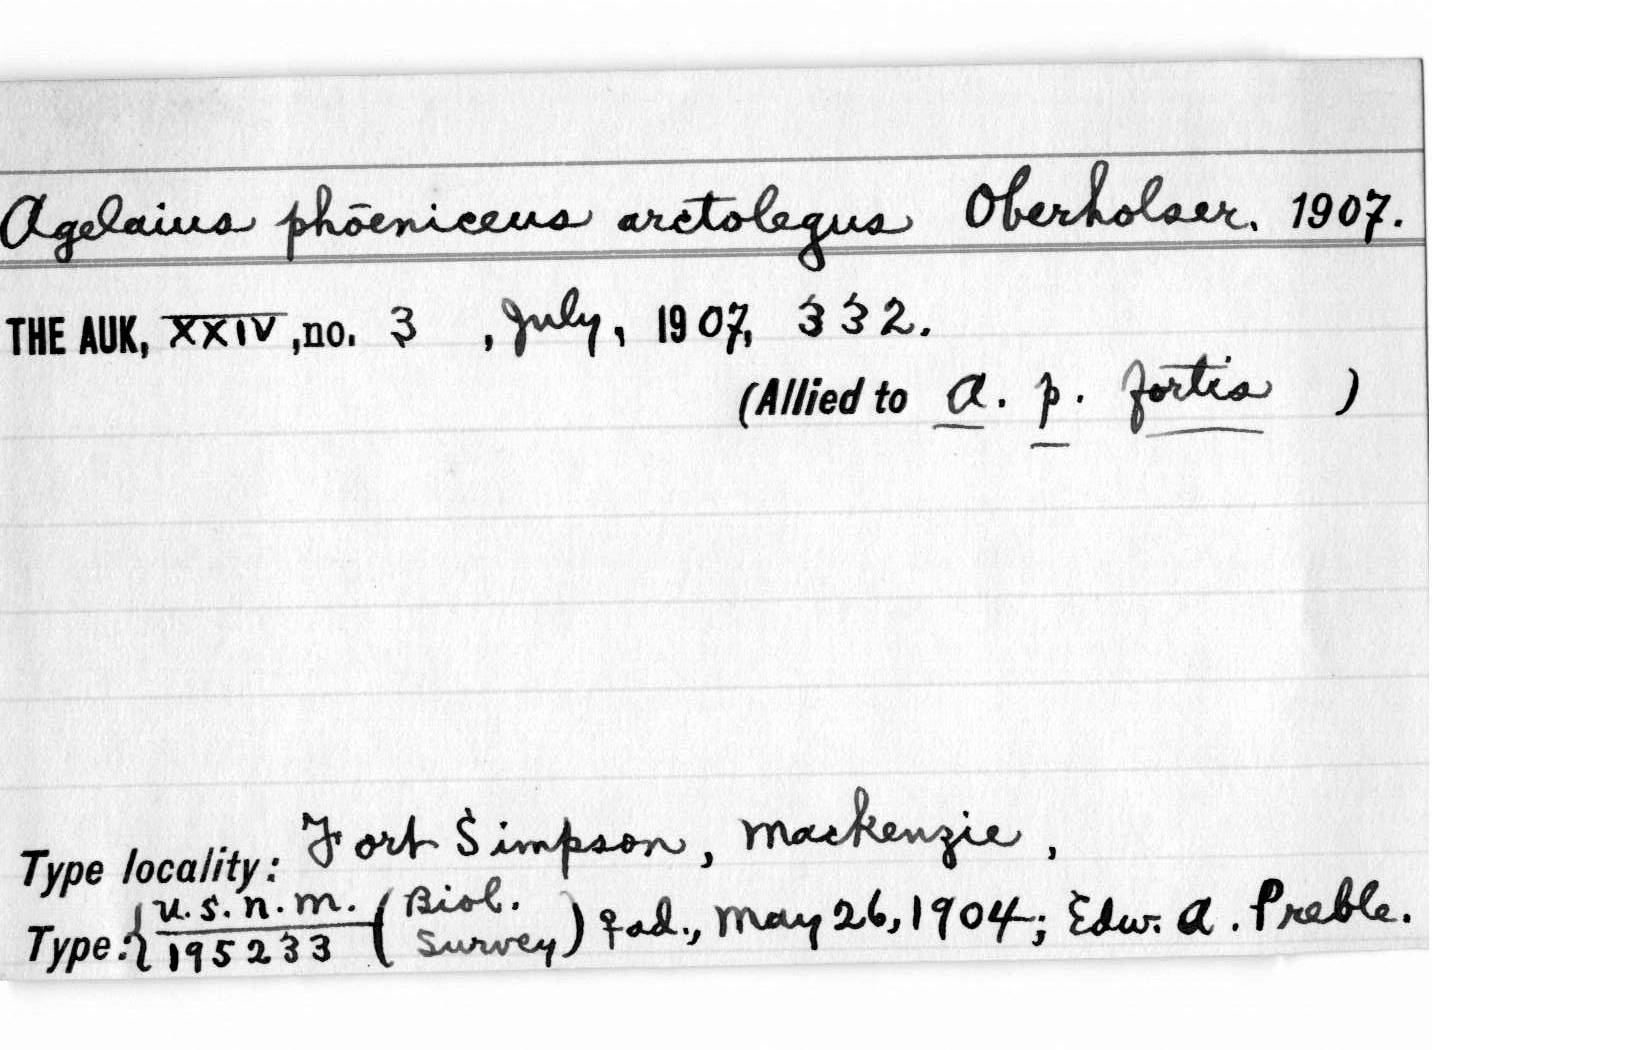 Agelaius phōeniceus arctolegus Oberholser, 1907.
THE AUK, XXIV, no. 3 , July, 1907, 332.
(Allied to A. p. fortis )
Type locality: Fort Simpson, Mackenzie,
Type: { U.S.N.M. / 195233 (Biol. Survey) ♀ad., May 26, 1904; Edw. A. Preble.